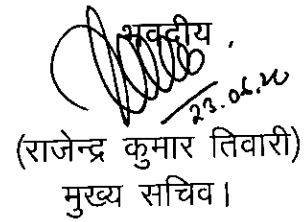 भवदीय,
23.06.20
(राजेन्द्र कुमार तिवारी)
मुख्य सचिव।